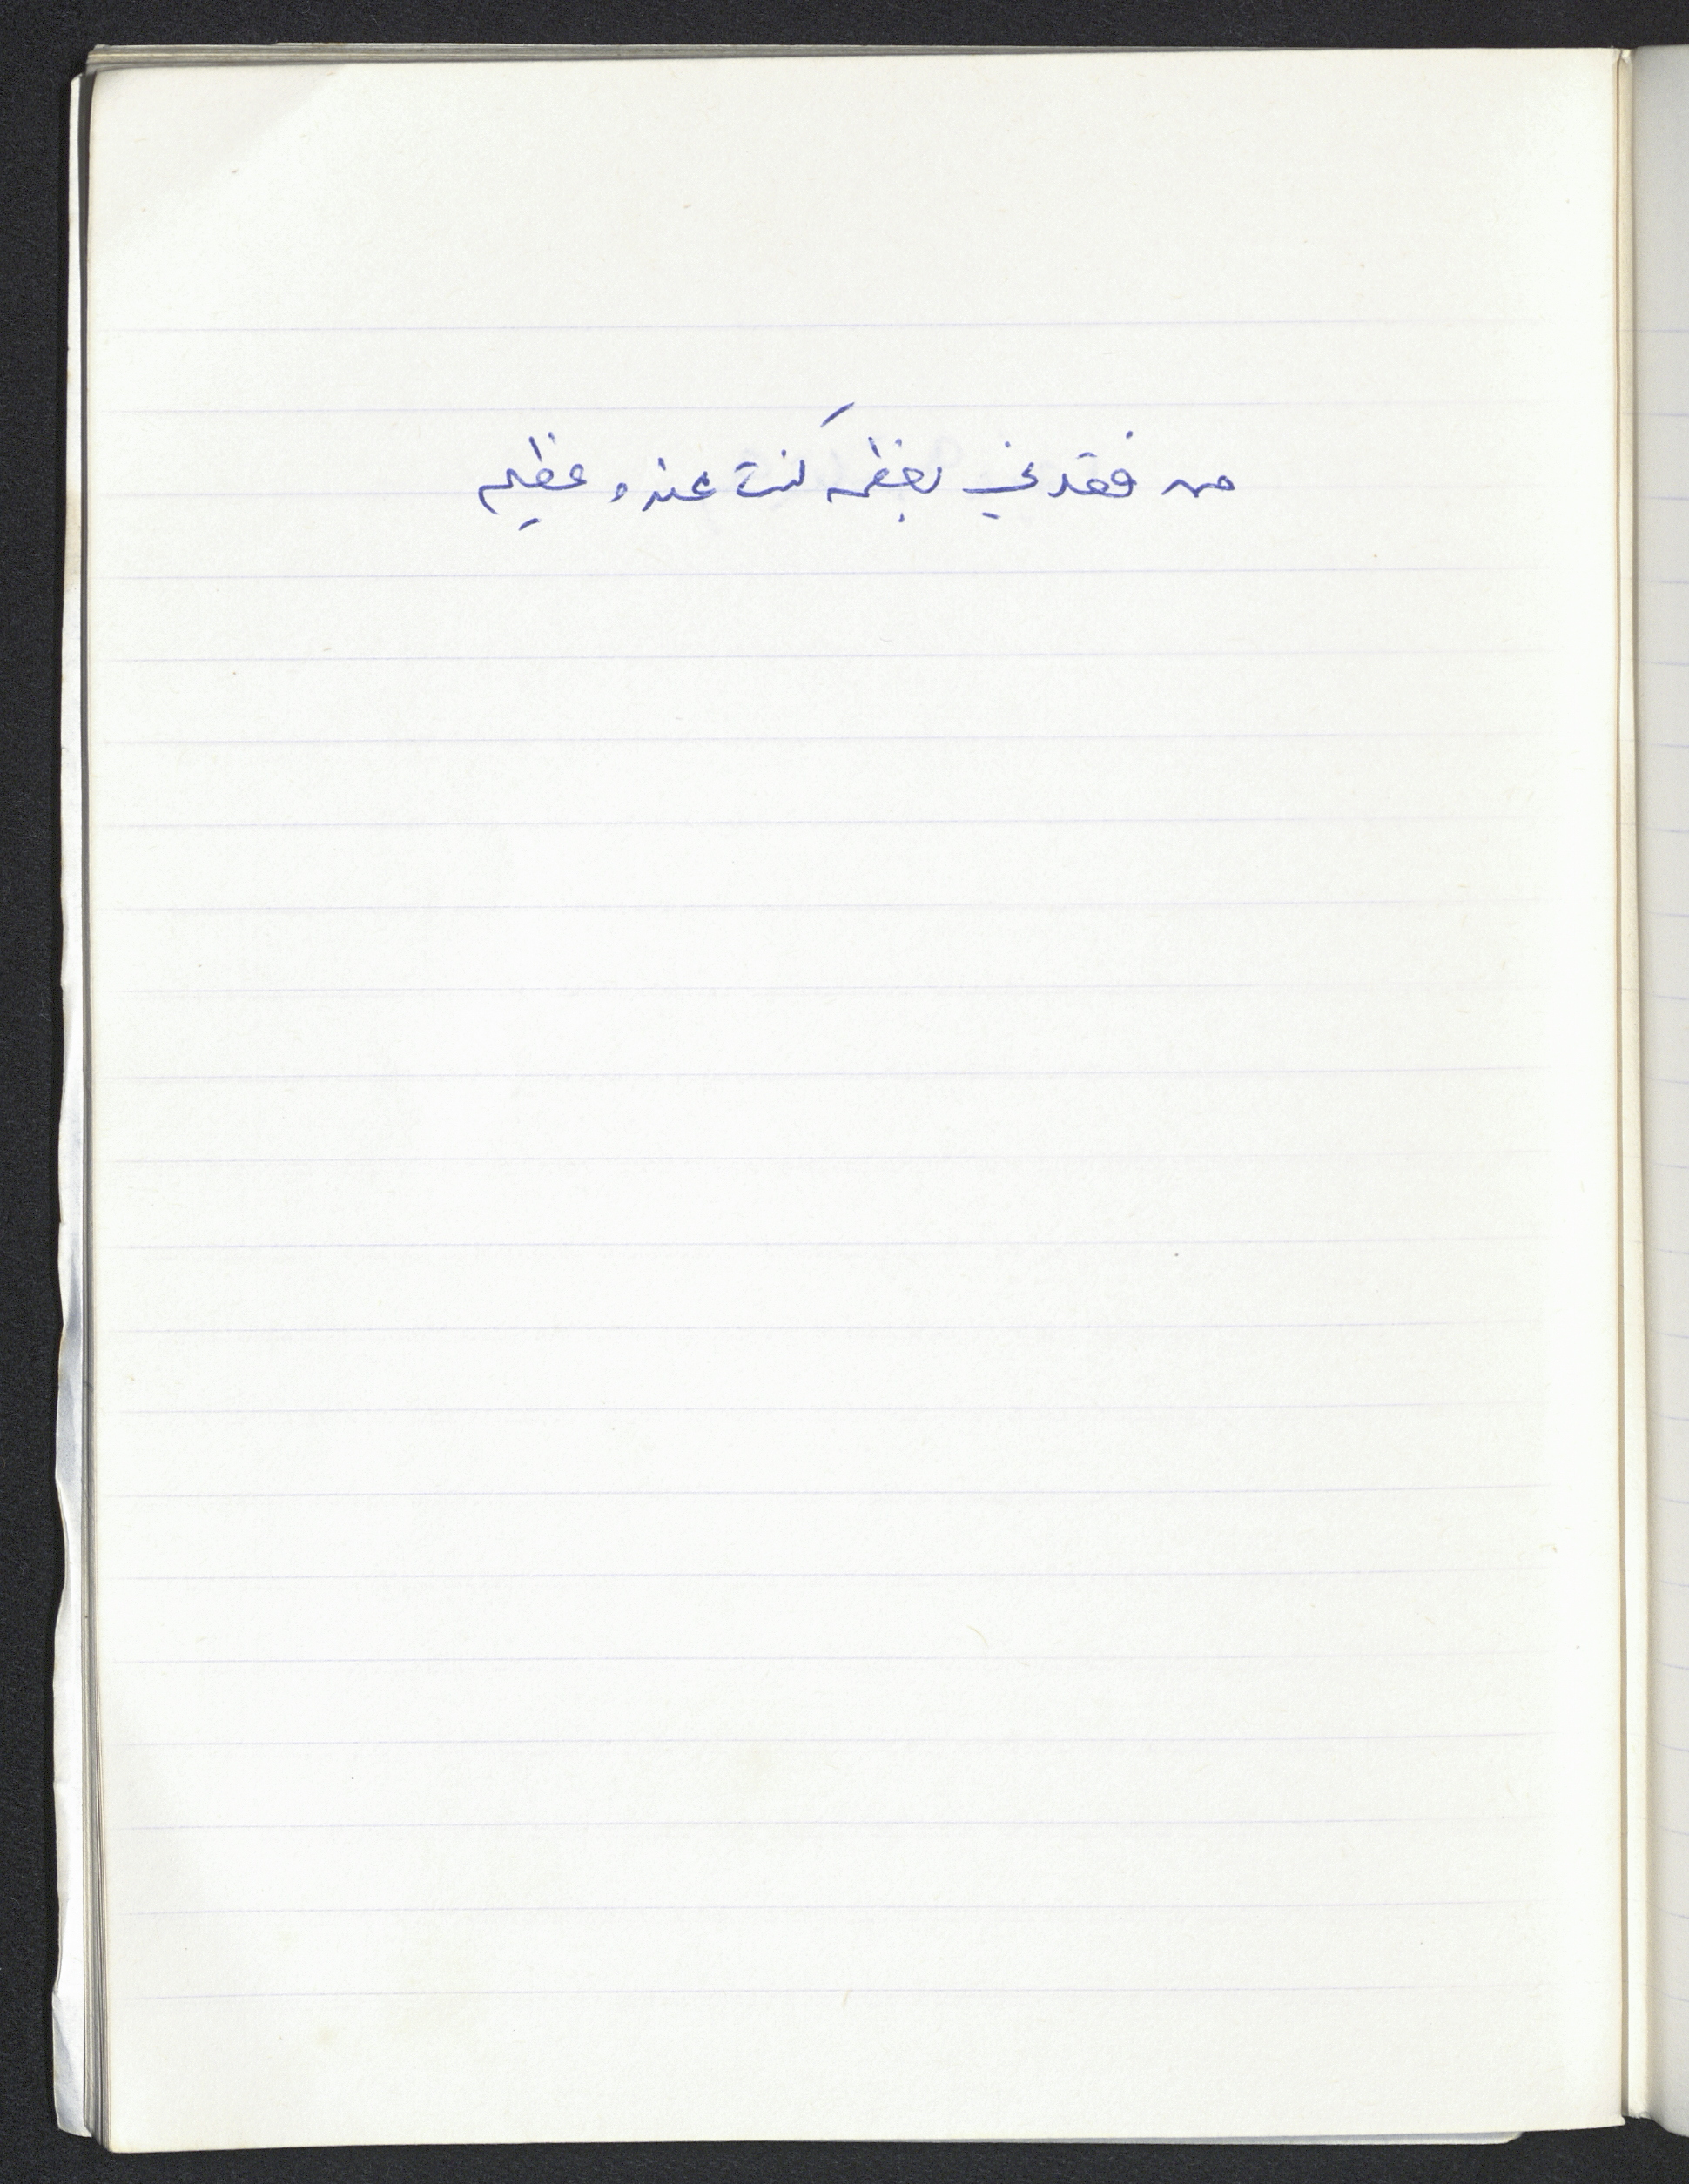 من فقدني بعظمه كنت عنده عظيم